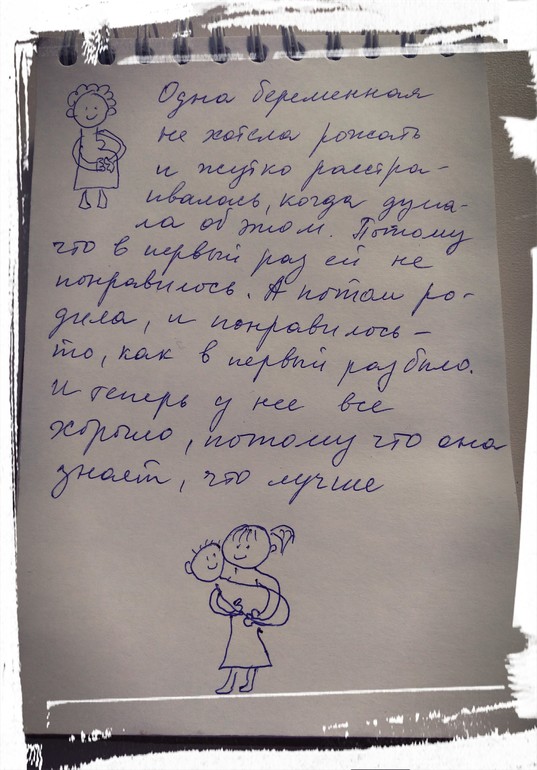 Одна беременная
не хотела рожать
и жутко расстра-
ивалась, когда дума-
ла об этом. Потому
что в первый раз ей не
понравилось. А потом ро-
дила, и понравилось –
то, как в первый раз было.
И теперь у нее все
хорошо, потому что она
знает, что лучше